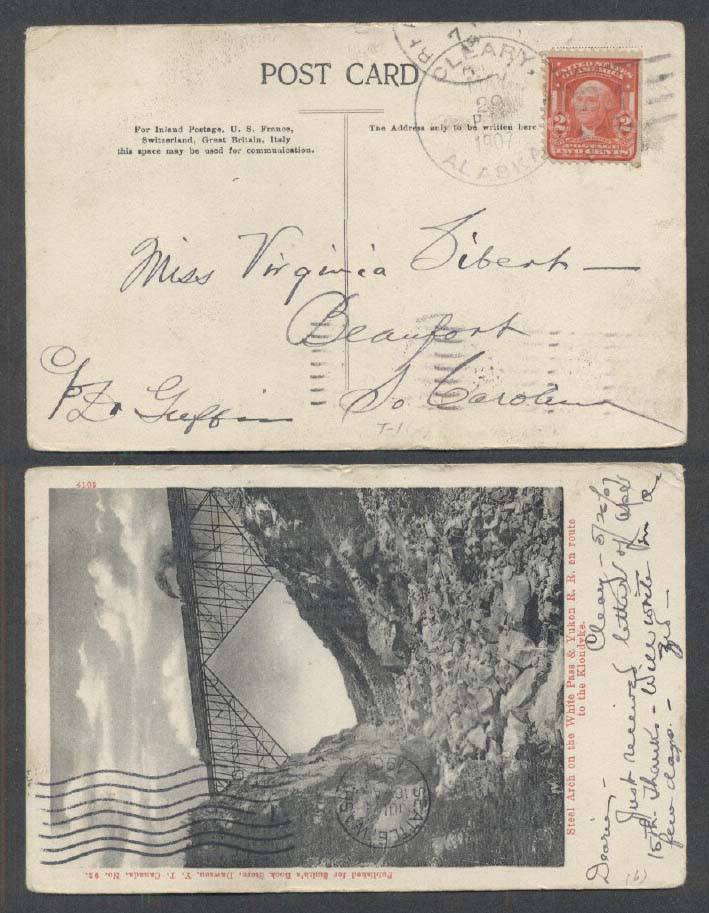 POST CARD
For Inland Postage, U. S. France,
Switzerland, Great Britain, Italy
this space may be used for communication.
The Address only to be written here
CLEARY,
20
1907
ALASKA
UNITED STATES
OF AMERICA
2 2
POSTAGE
TWO CENTS
Miss Virginia Sibert
Beaufort
So Carolina
c/o Dr Griffin
T-1
4019
Steel Arch on the White Pass & Yukon R. R. en route
to the Klondyke.
Published for Smith's Book Store, Dawson, Y. T. Canada, No. 92.
SEATTLE, WASH.
Cleary - 5/20/07
Dearie -
Just received letter of Apl
15th. Thanks - Will write in a
few days. -
(6)